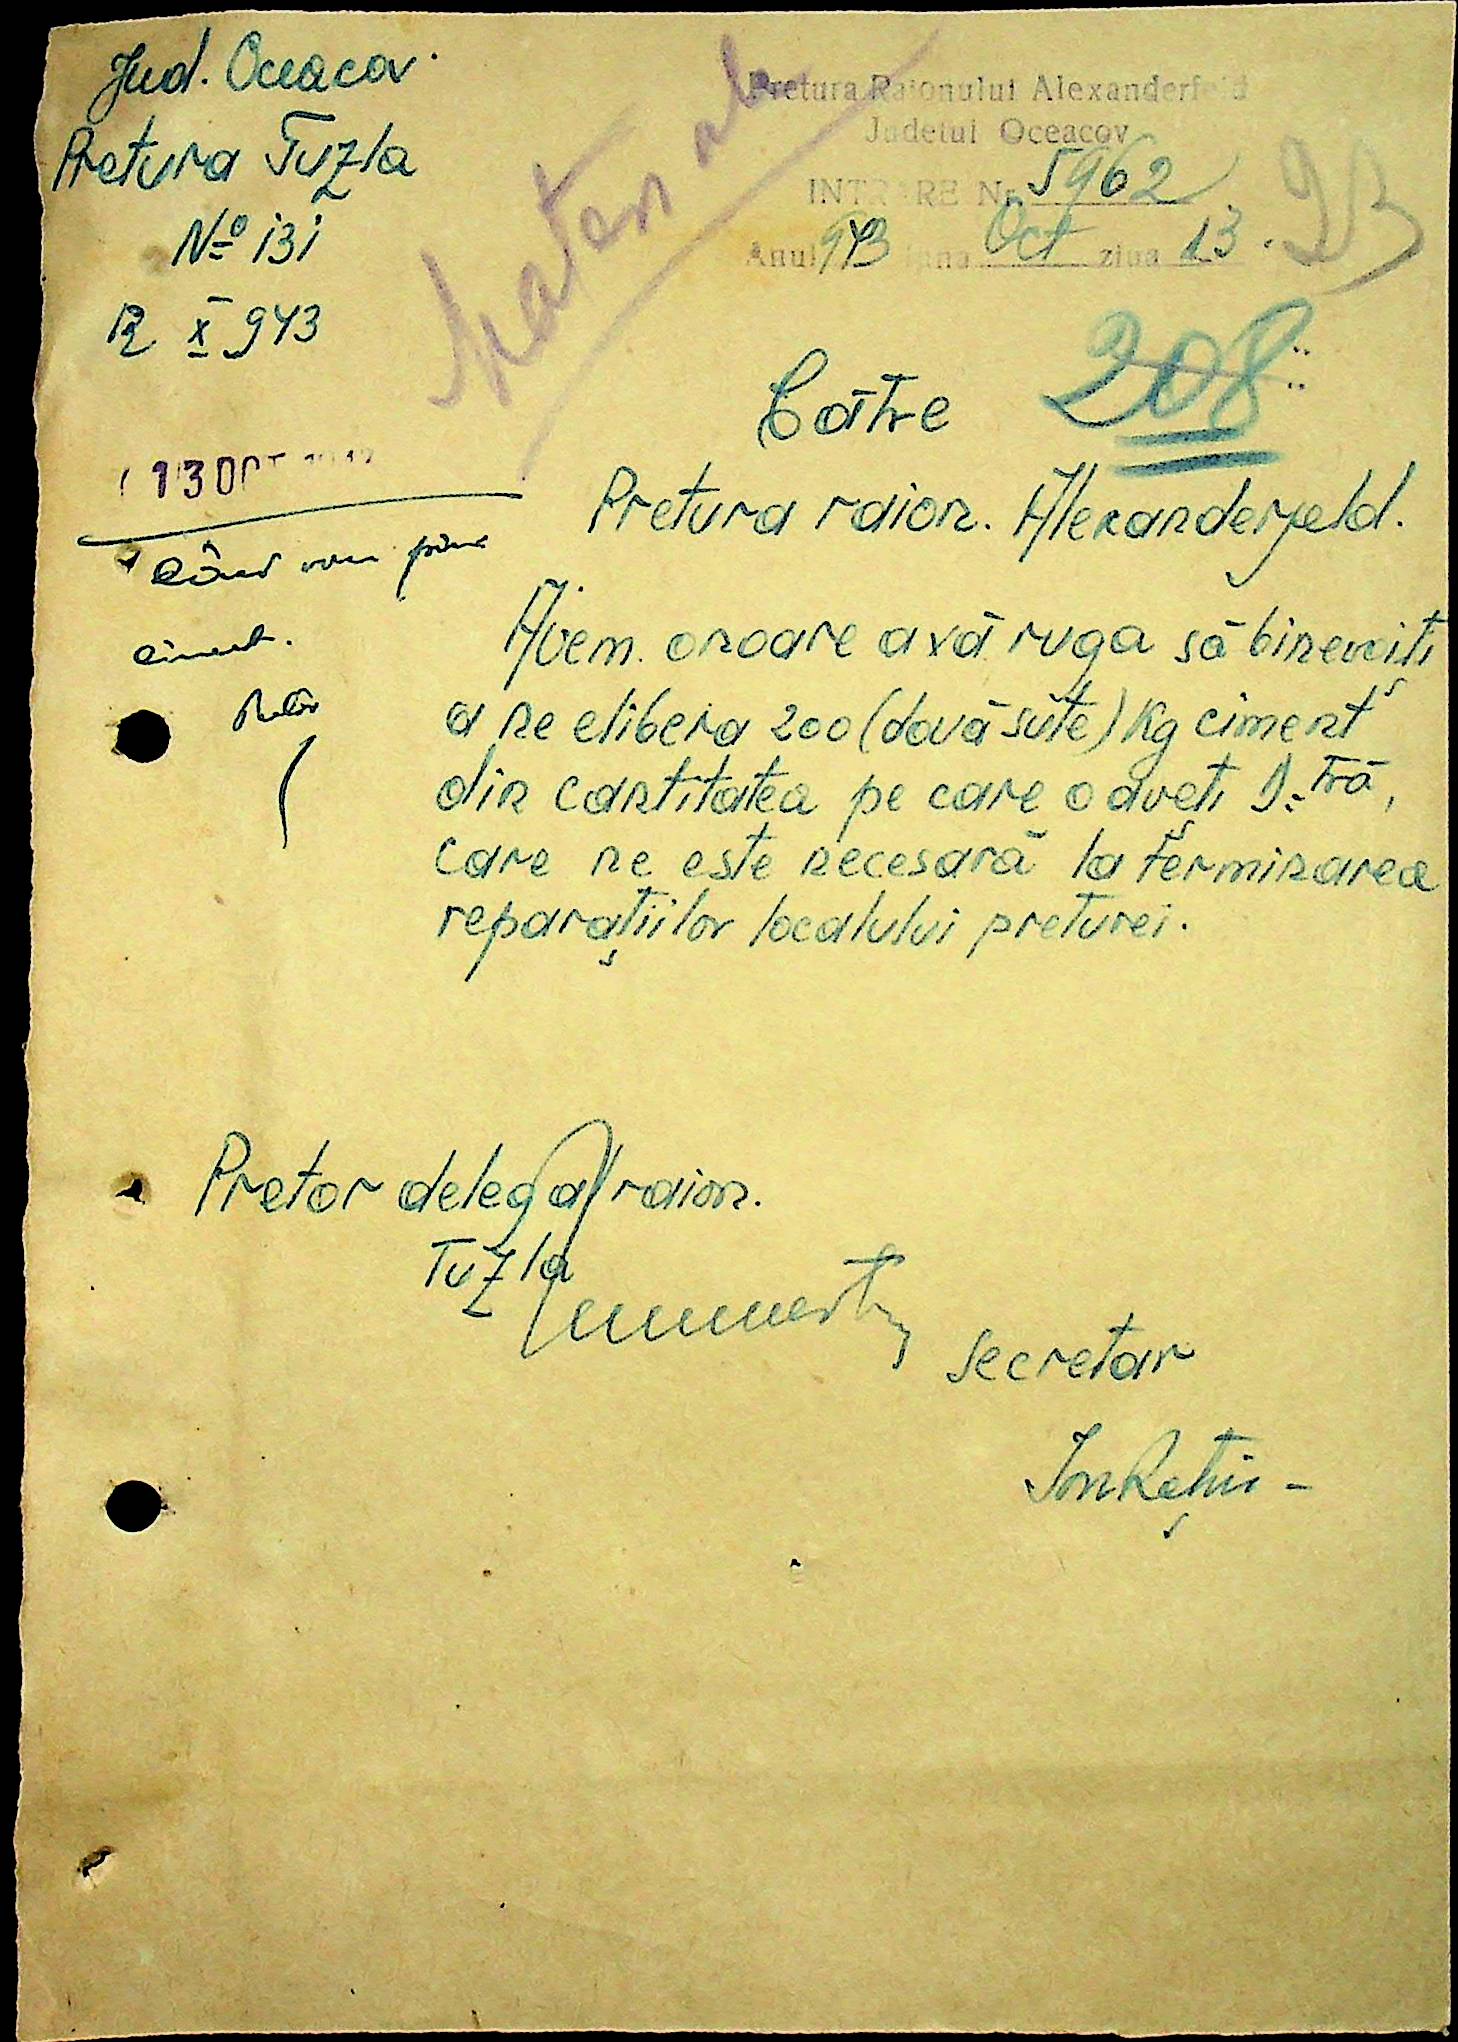 Jud. Oceacov.
Pretura Tuzla
Nº 131
12 X 943
Pretura Raionului Alexanderfeld
Județul Oceacov
INTRARE Nr. 5962
Anul 943 luna Oct ziua 13.
23
208
13 OCT 1943
Când vom primi
ciment.
Pretor
Către
Pretura raion. Alexanderfeld.
Avem onoare a vă ruga să binevoiți
a ne elibera 200 (două sute) Kg ciment
din cantitatea pe care o aveți D-tră,
care ne este necesară la terminarea
reparațiilor localului preturei.
Pretor delegat raion.
Tuzla
Secretar
Ion Rațiu -